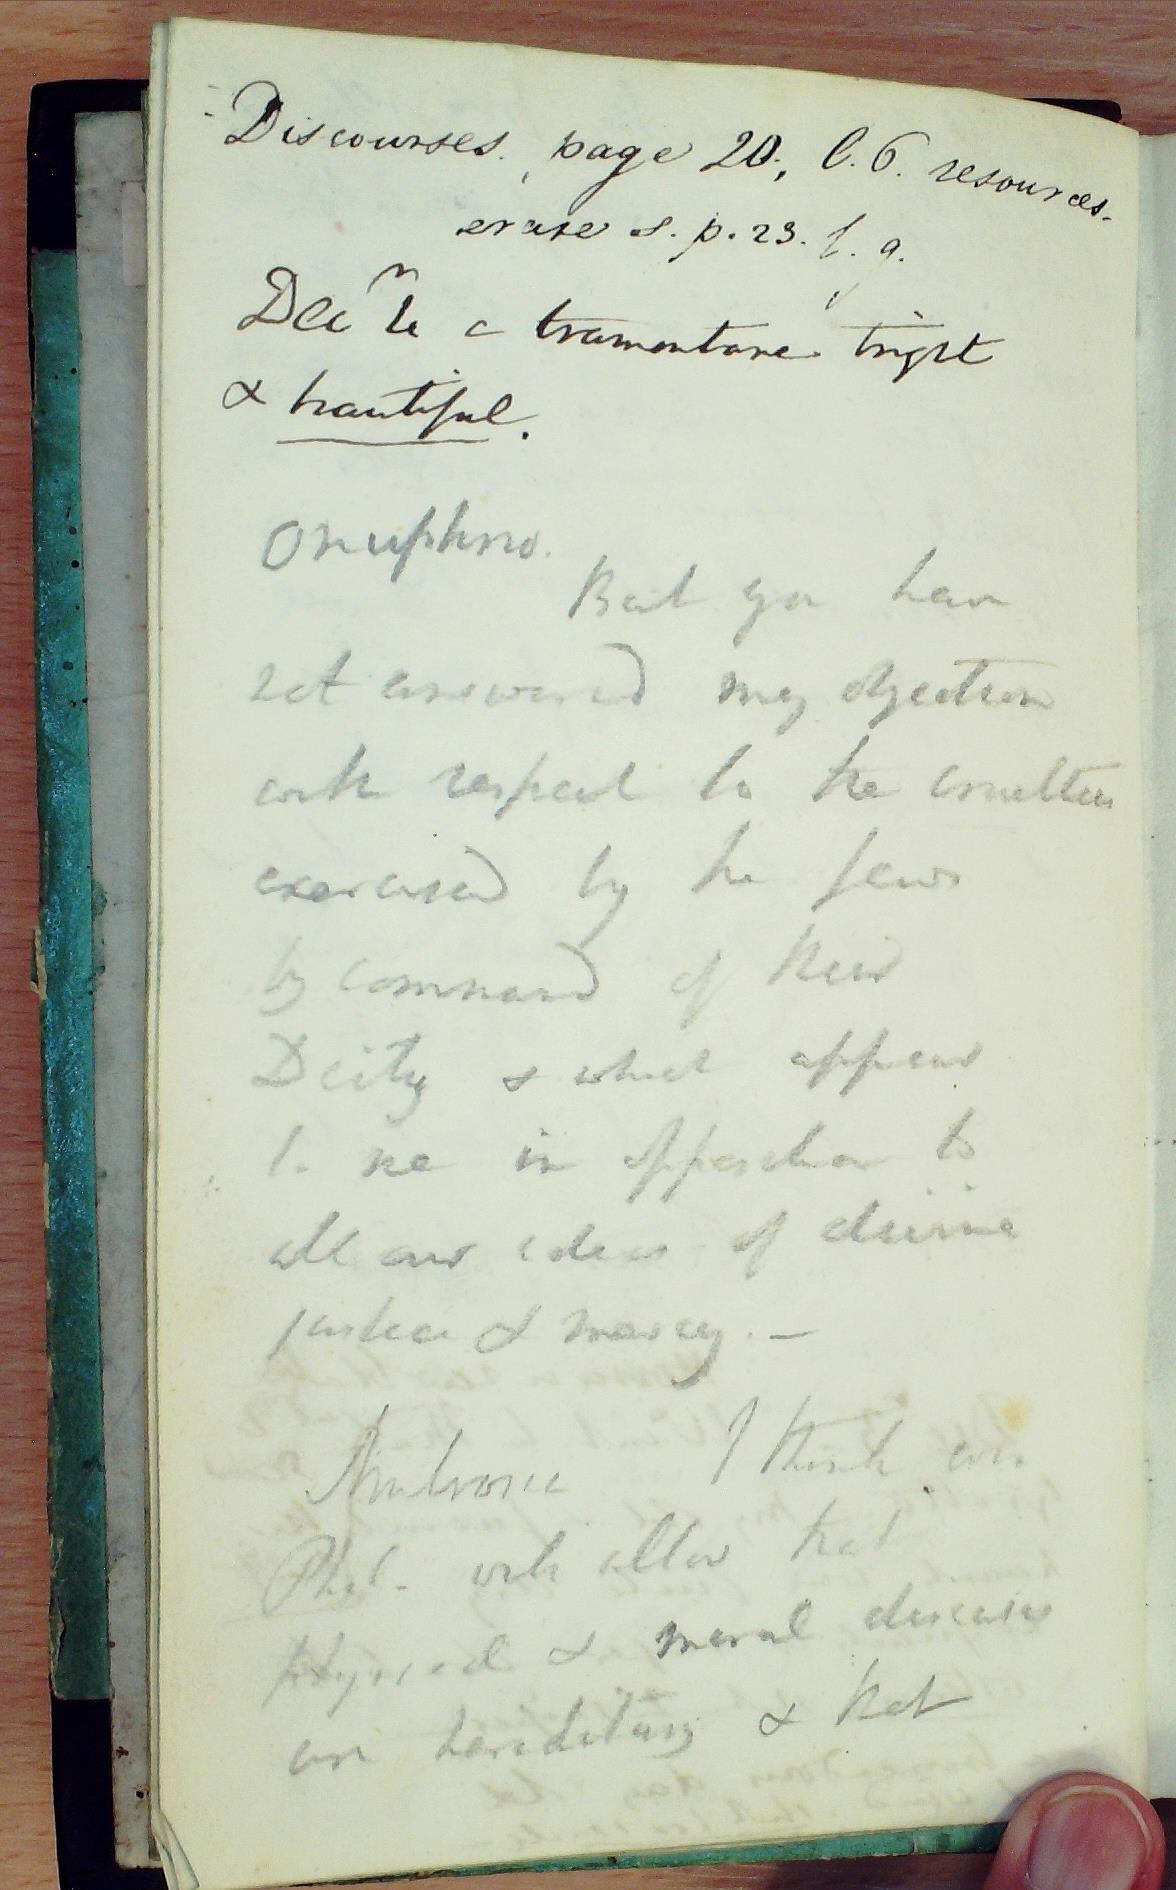 Discourses. page 20., l. 6. resources.
erase s. p. 23. l. 9.
Decr a tramontane bright
& beautiful.
Onuphrio.
But you have
not answered my objection
with respect to the cruelties
exercised by the Jews
by command of their
Deity & which appear
to me in opposition to
all our ideas of divine
justice & mercy. —
Ambrosio I think even
Phil. will allow that
physical & moral diseases
are hereditary & that